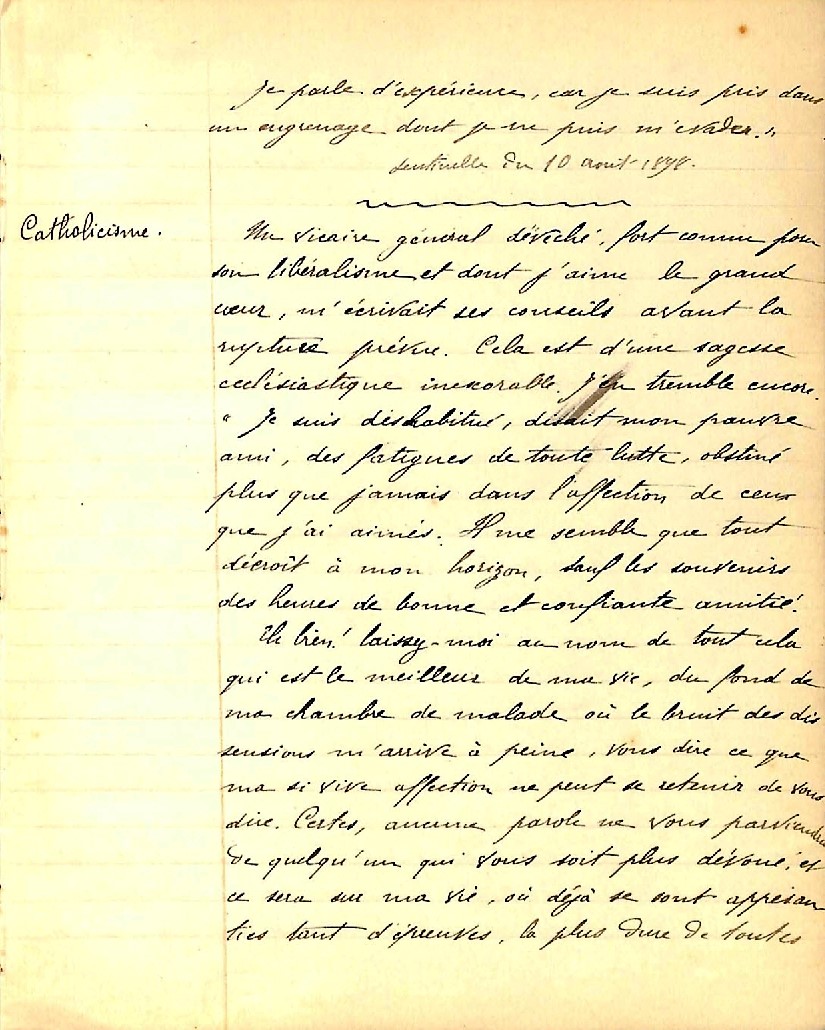 Je parle d'expérience, car je suis pris dans
un engrenage dont je ne puis m'évader. »
Sentinelle du 10 août 1898.
Catholicisme.
Un vicaire général d'évêché, fort connu pour
son libéralisme et dont j'aime le grand
cœur, m'écrivait ses conseils avant la
rupture prévue. Cela est d'une sagesse
ecclésiastique inexorable. J'en tremble encore.
« Je suis déshabitué, disait mon pauvre
ami, des fatigues de toute lutte, obstiné
plus que jamais dans l'affection de ceux
que j'ai aimés. Il me semble que tout
décroît à mon horizon, sauf les souvenirs
des heures de bonne et confiante amitié.
Eh bien! laissez-moi au nom de tout cela
qui est le meilleur de ma vie, du fond de
ma chambre de malade où le bruit des dis
sensions m'arrive à peine, vous dire ce que
ma si vive affection ne peut se retenir de vous
dire. Certes, aucune parole ne vous parviendra
de quelqu'un qui vous soit plus dévoué, et
ce sera sur ma vie, où déjà se sont appesan
ties tant d'épreuves, la plus dure de toutes